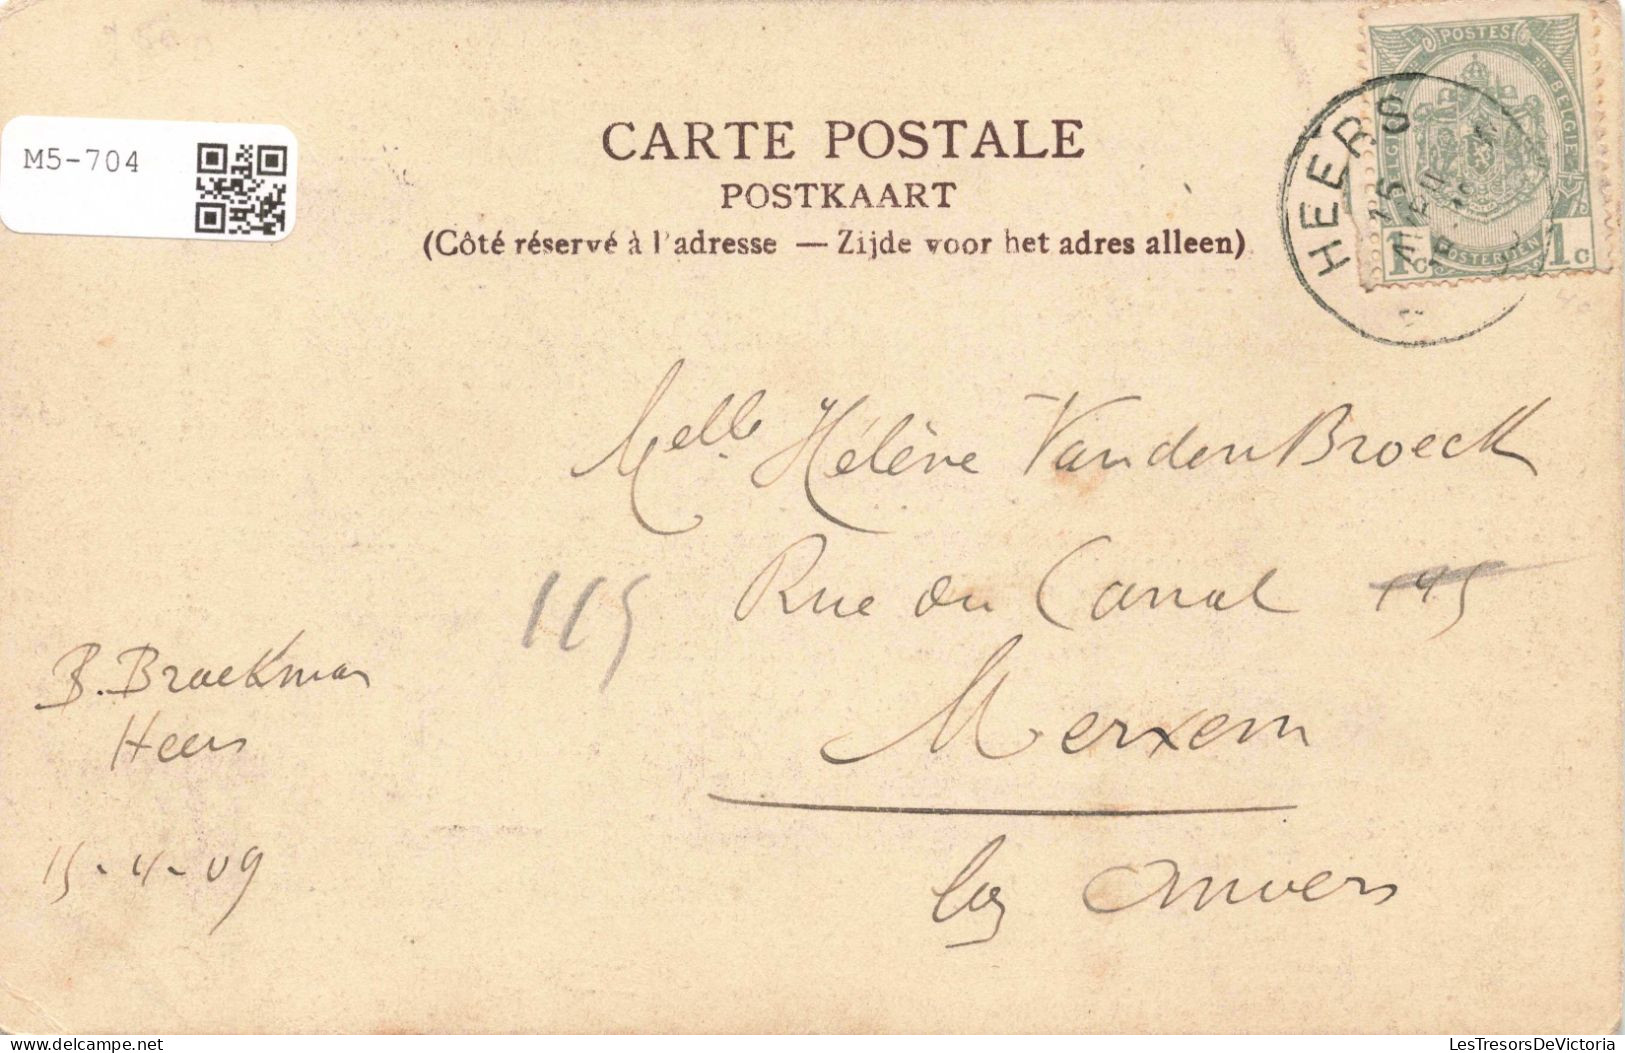 M5-704
CARTE POSTALE
POSTKAART
(Côté réservé à l'adresse — Zijde voor het adres alleen)
POSTES
BELGIQUE BELGIE
POSTERIJEN
1c 1c
HEERS
15
Melle Hélène VandenBroeck
115 Rue du Canal 145
Merxem
Anvers
B. Broekman
Heers
15-4-09
delcampe.net
LesTresorsDeVictoria